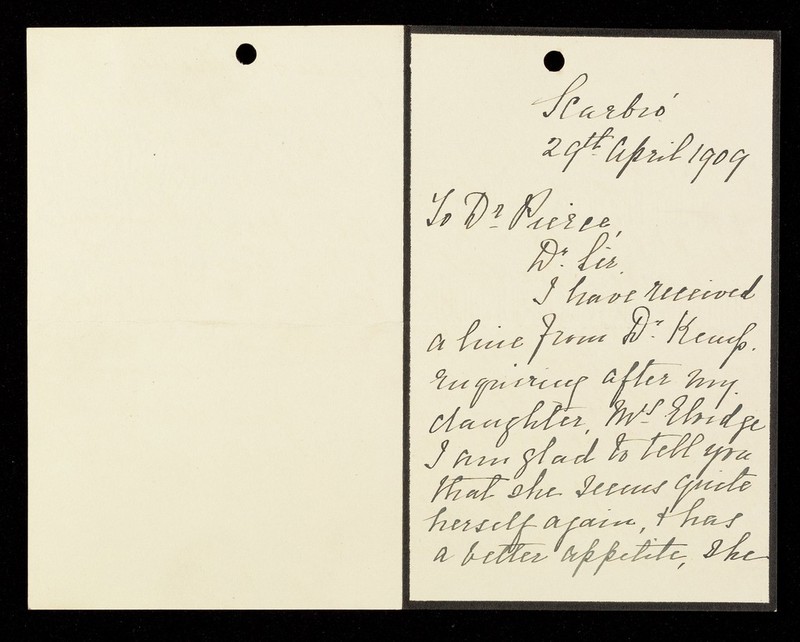 Scarbro'
29th April 1909
To Dr Pierce,
Dr. Sir,
I have received
a line from Dr. Kemp.
enquiring after my
daughter, Mrs Elvidge
I am glad to tell you
that she seems quite
herself again, & has
a better appetite, she